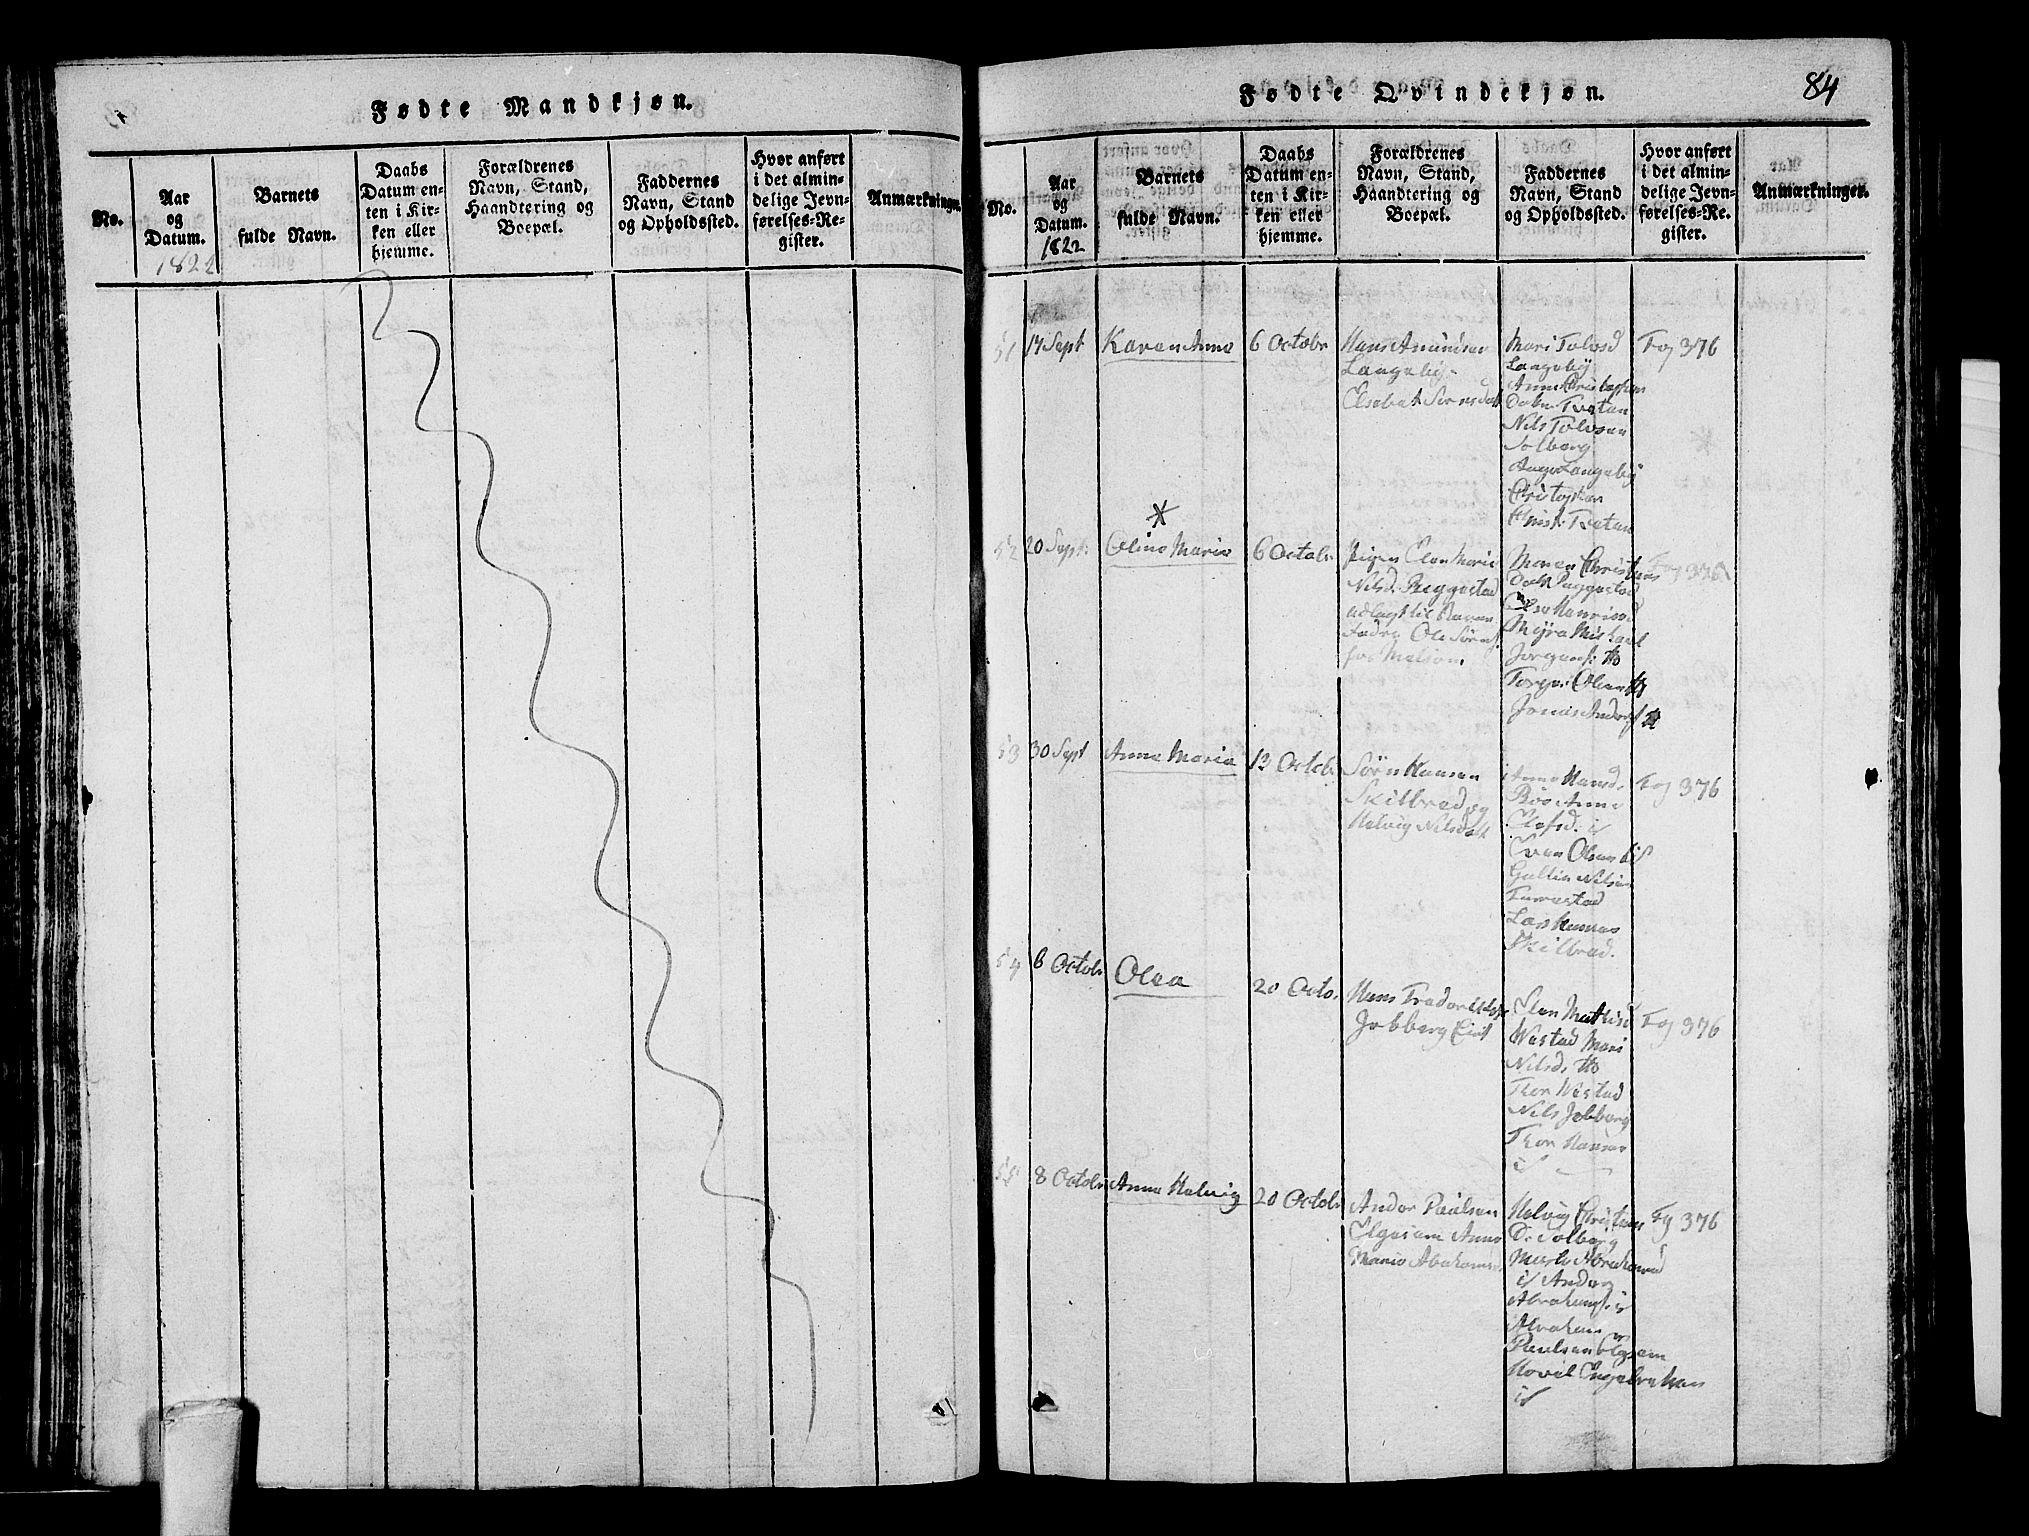 Fødte Mandkjøn.
No.
Aar
og
Datum.
1822
Barnets
fulde Navn.
Daabs
Datum en-
ten i Kir-
ken eller
hjemme.
Forældrenes
Navn, Stand,
Haandtering og
Boepæl.
Faddernes
Navn, Stand
og Opholdssted.
Hvor anført
i det almin-
delige Jevn-
førelses-Re-
gister.
Anmærkninger.
Fødte Qvindekjøn.
84
No.
Aar
og
Datum.
1822
Barnets
fulde Navn.
Daabs
Datum en-
ten i Kir-
ken eller
hjemme.
Forældrenes
Navn, Stand,
Haandtering og
Boepæl.
Faddernes
Navn, Stand
og Opholdssted.
Hvor anført
i det almin-
delige Jevn-
førelses-Re-
gister.
Anmærkninger.
51
17 Sept
Karen Anne
6 Octobr
Hans Amundsen
Langeby
Elsebet Sørnsdatt
Mari Tolvsd
Langeby
Anne Christophers
Datr Tvetan
Nils Tolvsen
Solberg
Aage Langeby
Christopher
Tvetan
Fog 376
52
20 Sept:
*
Oline Marie
6 Octobr
Pigen Elen Marie
Nilsd. Reggestad
udlagt til Barne
fader Ole Sørns
Maren Christens
Datt Reggestad
Myra Michael
Jørgens: tto
Torger Olsen tto
Jonas Anders
Fog 376
53
30 Sept
Anne Maria
13 Octobr
Sørn Hansen
Skilbred og
Helvig Nilsdatt
Anne Hansd.
Bøe Anne
Olefsd. is
Even Olsen is
Nilsen
Lars Hansen
Skilbred.
Fog 376
54
6 Octobr
Olea
20 Octo.
Hans Frederiks
Jobberg
Elen Mathisd
Westad Mari
Nilsd. tto
Thor Westad
Nils Jobberg
Thor Hansen
is
Fog 376
55
8 Octobr
Anne Helvig
20 Octobr
Ander Paulsen
Elgesem Anne
Marie Abrahams
Helvig Christens
D. Solberg
Abrahamsd
is Anders
Abrahams: is
Abraham
Paulsen Elgsem
Engebrethsen
is
Fog 376